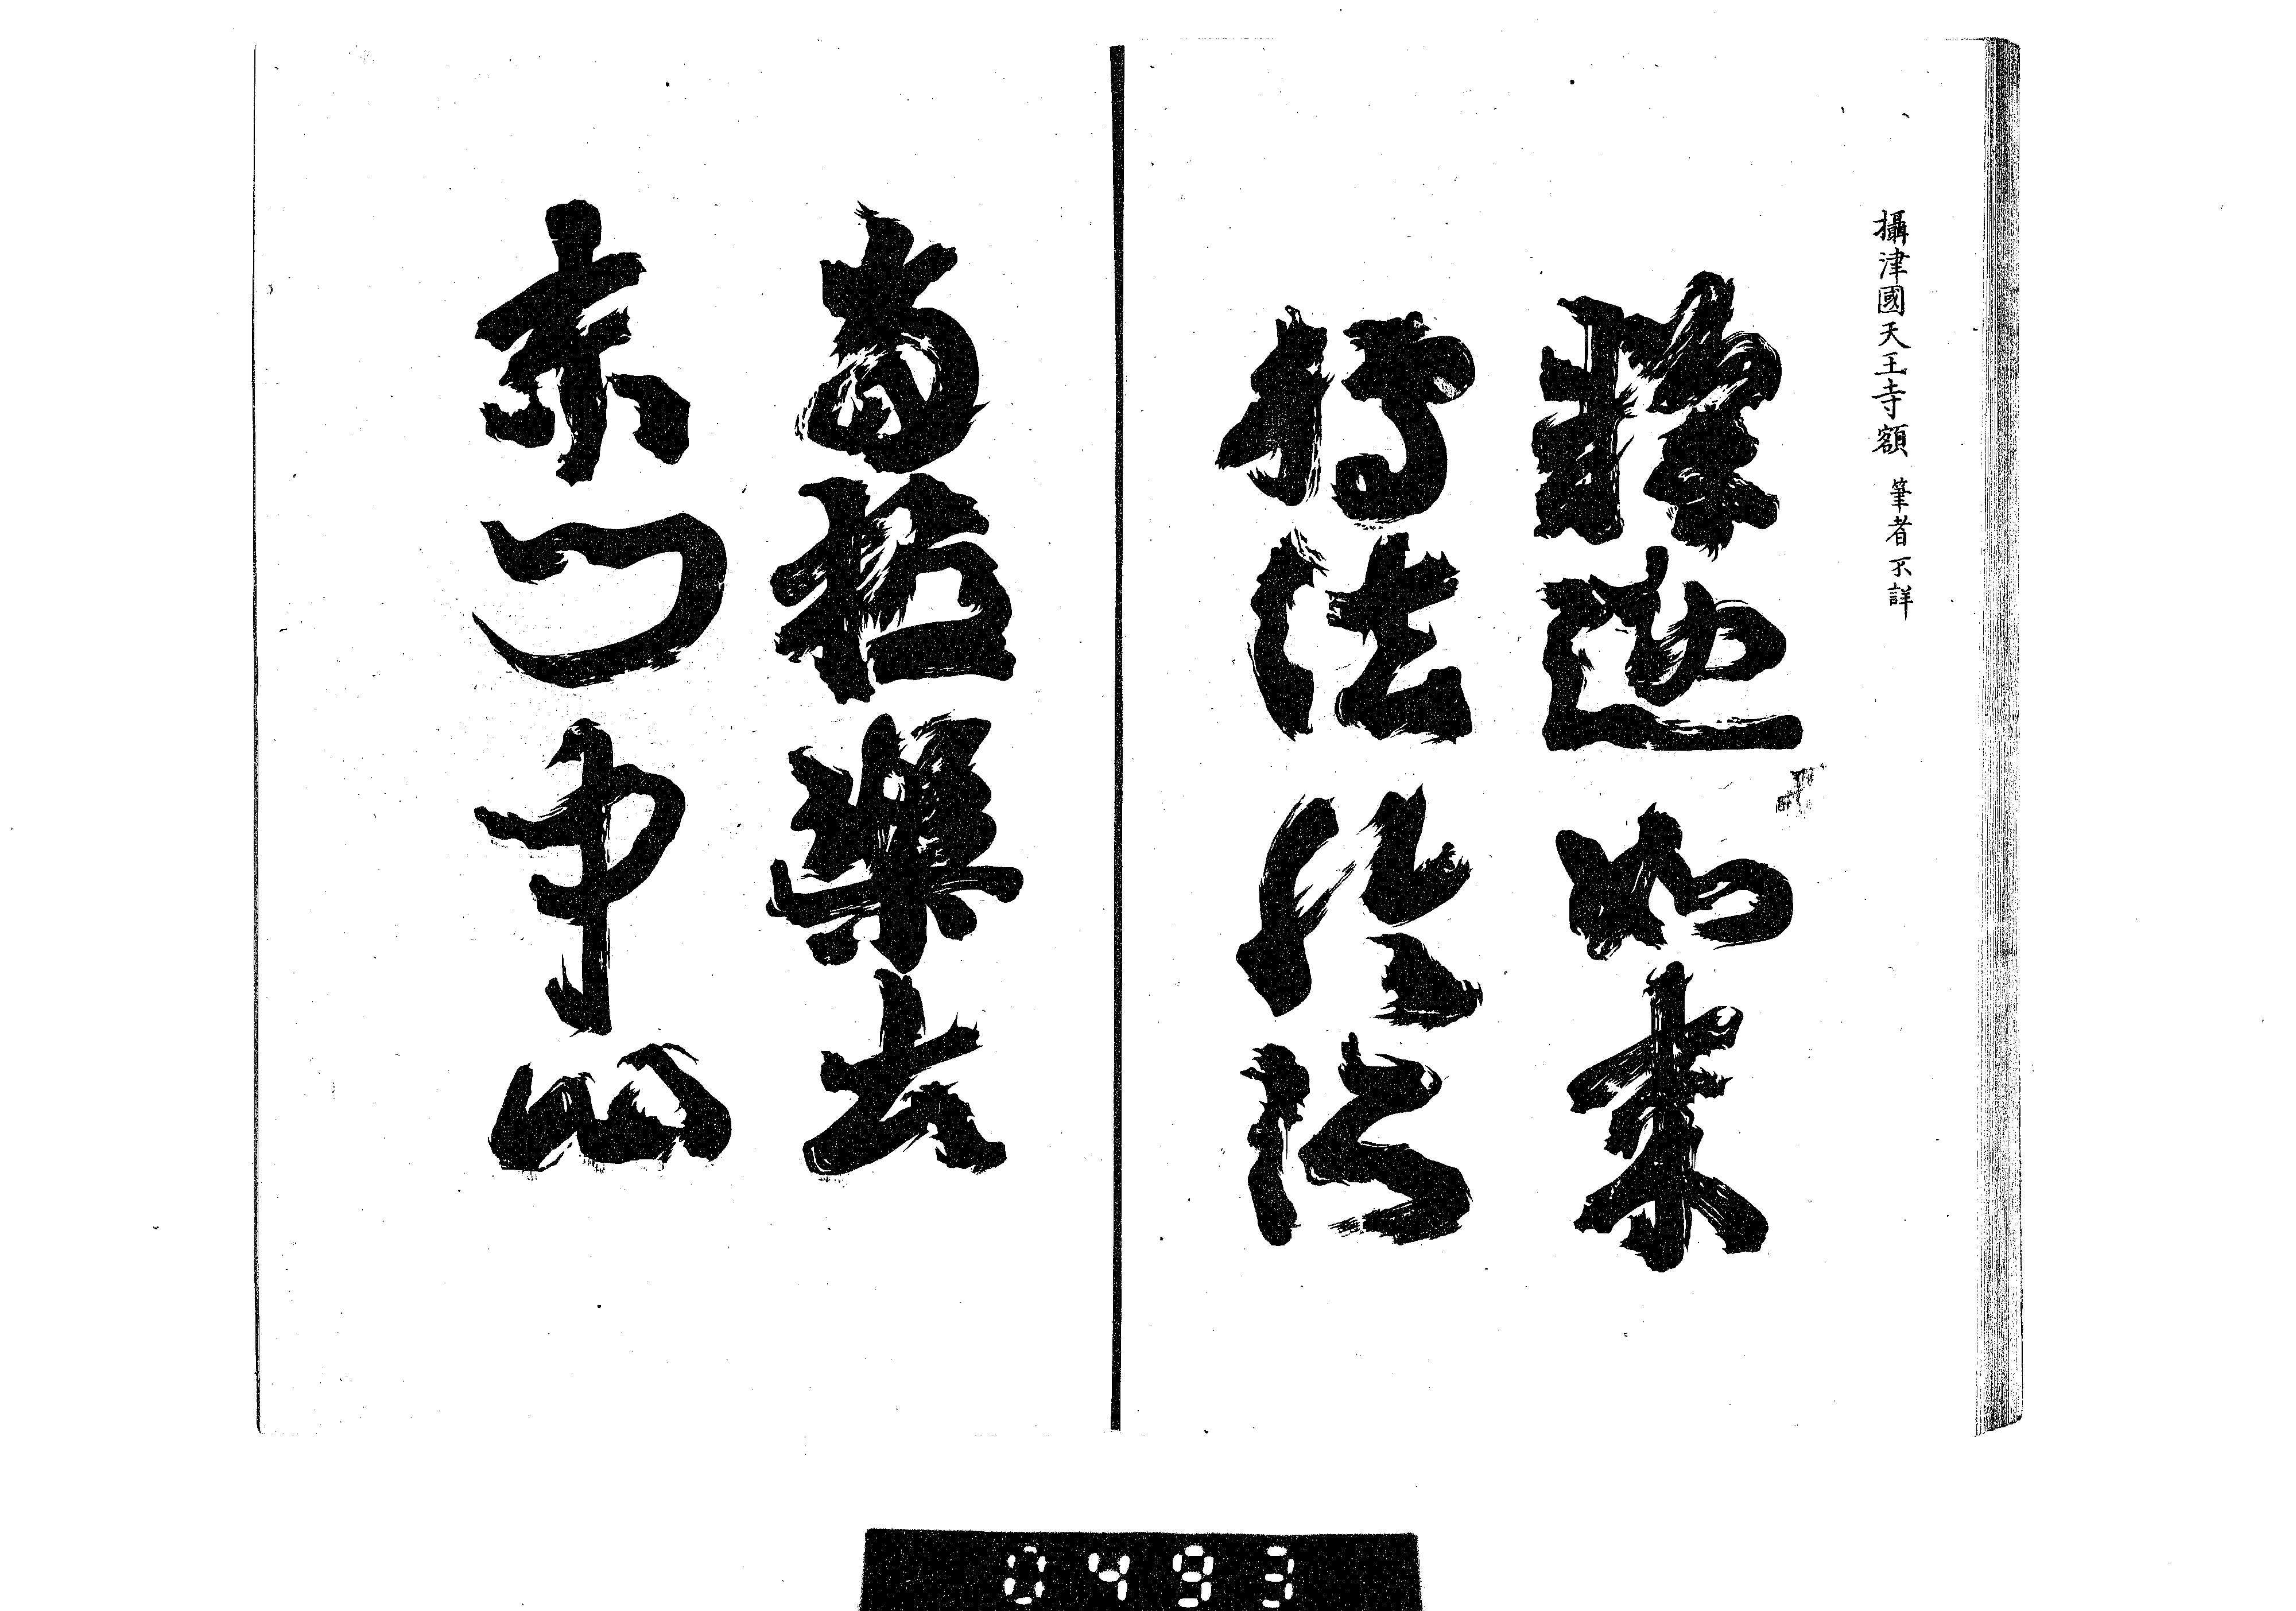 攝津國天王寺額 筆者不詳
釋迦如来
轉法輪所
當極樂土
東門中心
0493